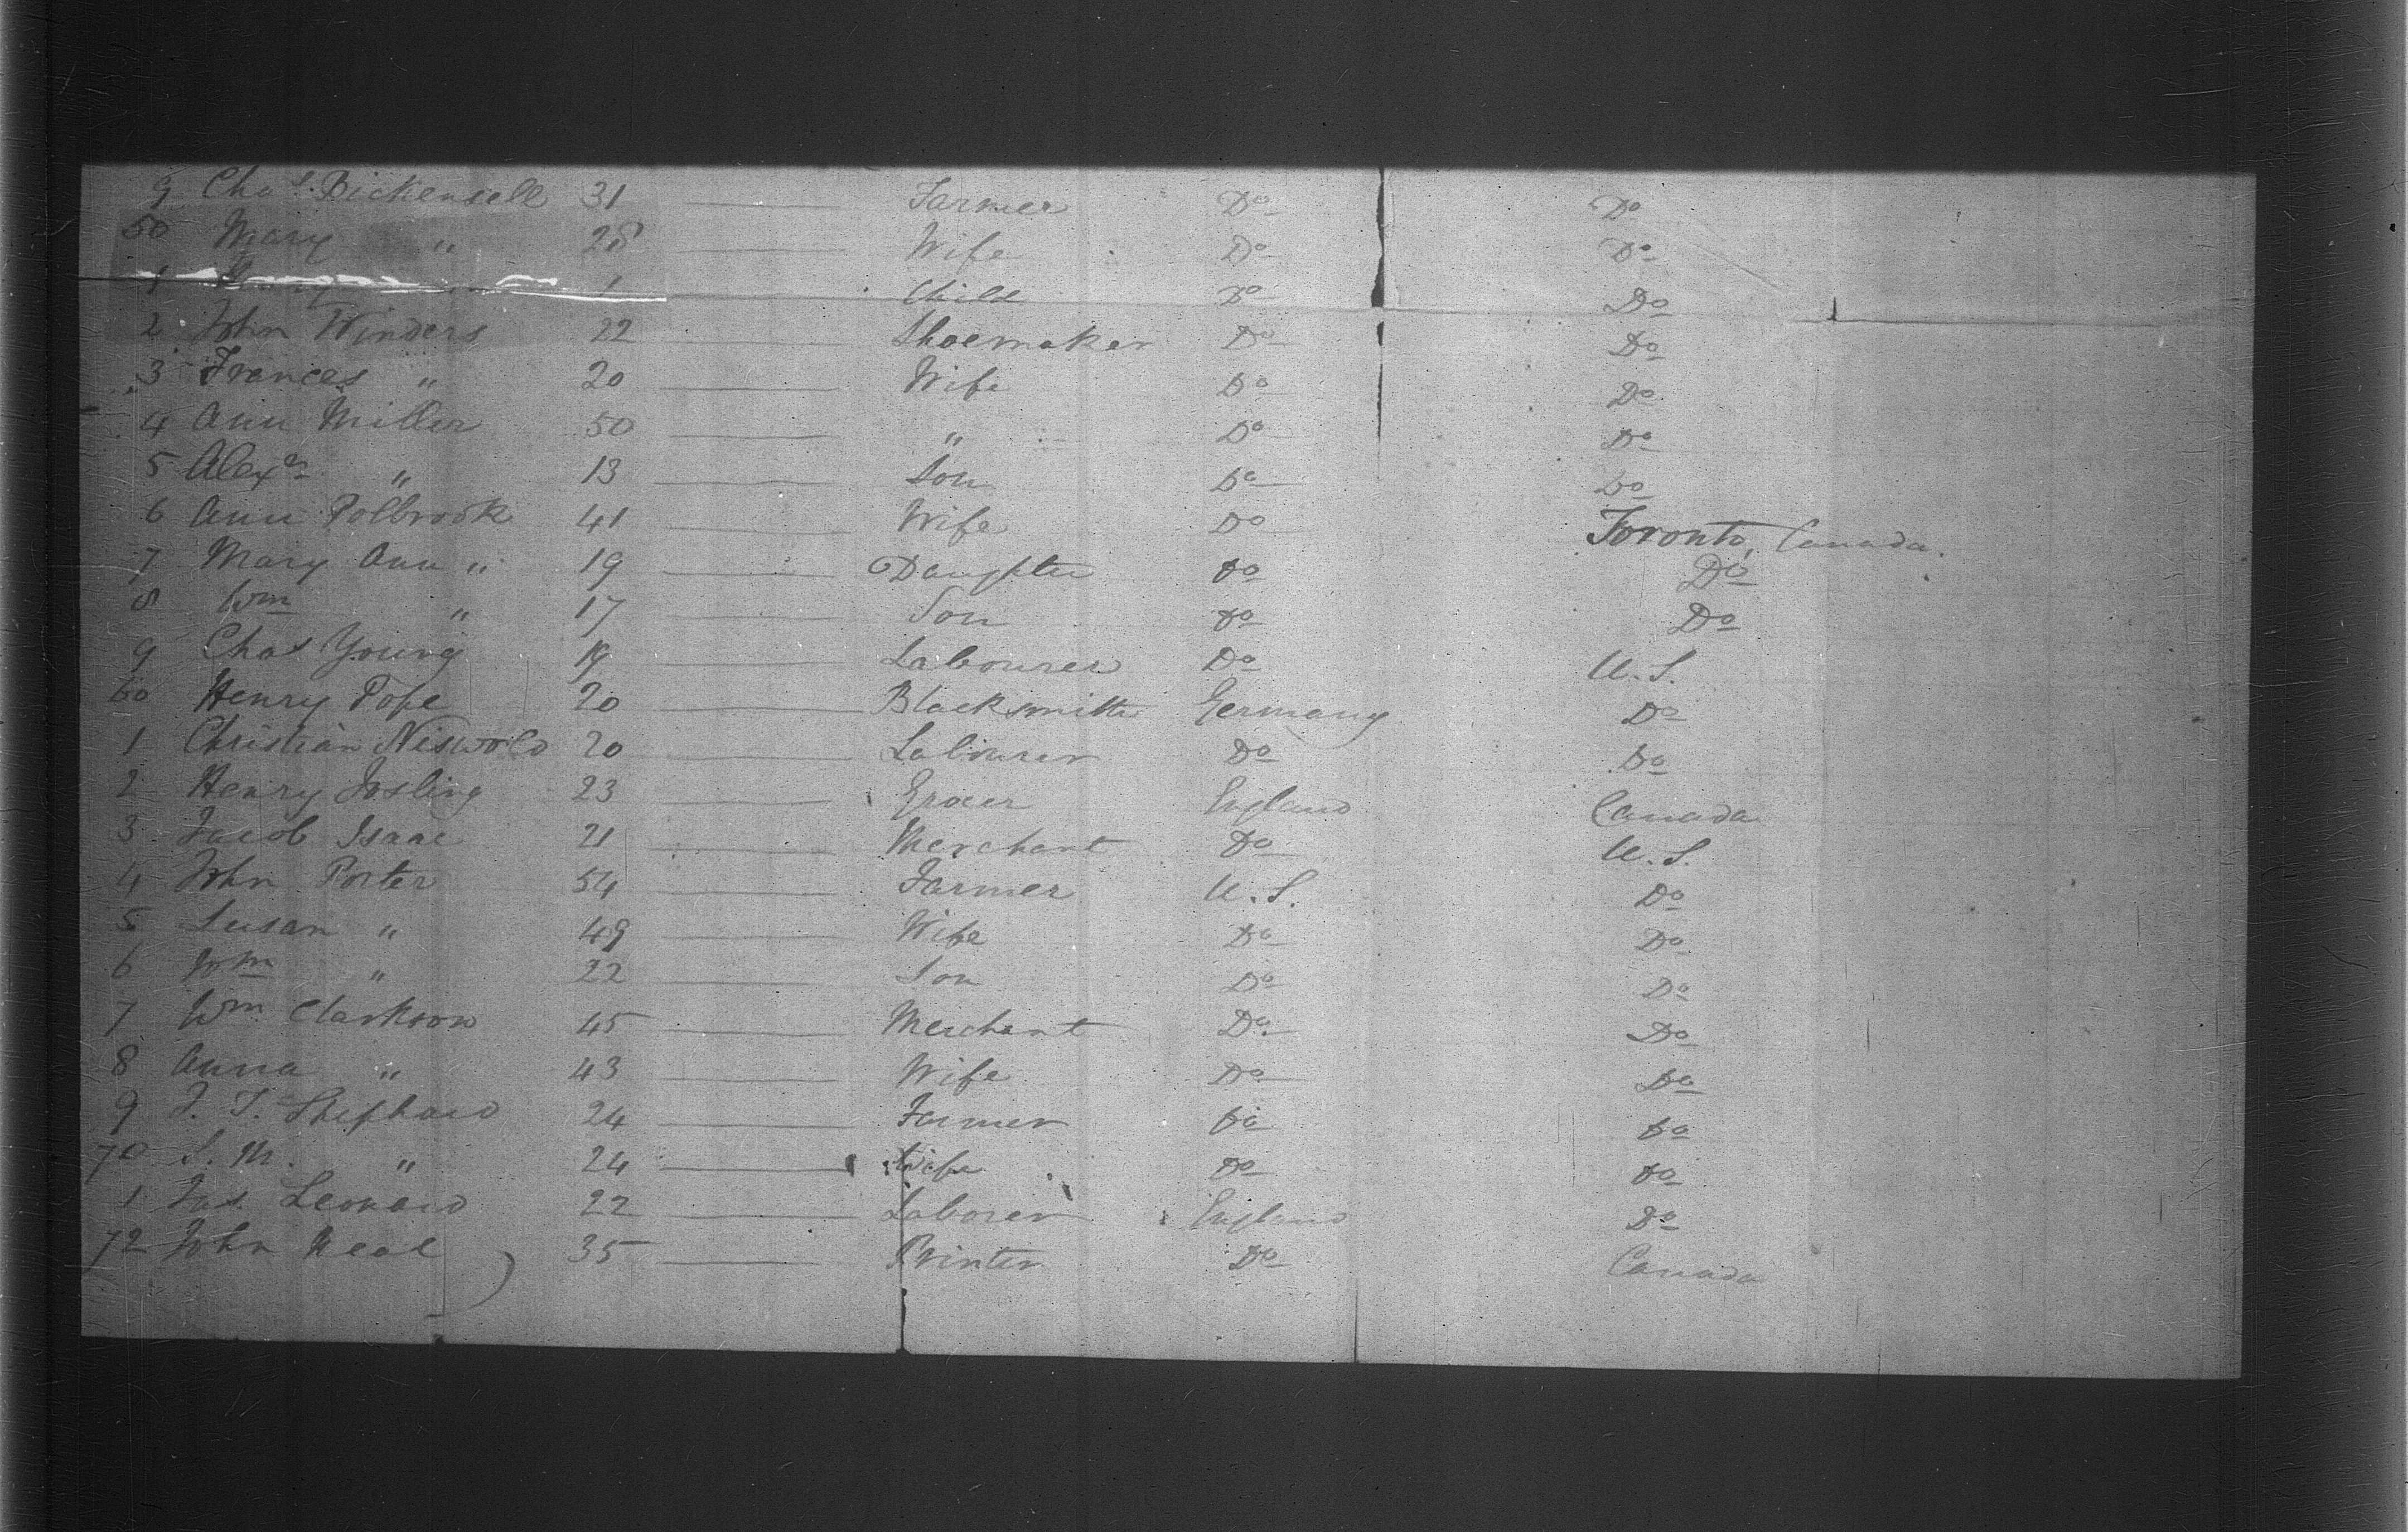 9 Chas. Bickensell 31 Farmer Do Do
50 Mary " 28 Wife Do Do
1 1 Child Do Do
2 John Winders 22 Shoemaker Do Do
3 Frances " 20 Wife Do Do
4 Ann Miller 50 " Do Do
5 Alexr " 13 Son Do Do
6 Ann Polbrook 41 Wife Do Toronto, Canada.
7 Mary Ann " 19 Daughter Do Do
8 Wm " 17 Son Do Do
9 Chas Young 19 Labourer Do U.S.
60 Henry Pope 20 Blacksmith Germany Do
1 Christian Niswold 20 Labourer Do Do
2 Henry Josling 23 Grocer England Canada
3 Jacob Isaac 21 Merchant Do U.S.
4 John Porter 54 Farmer U.S. Do
5 Susan " 49 Wife Do Do
6 Wm " 22 Son Do Do
7 Wm Clarkson 45 Merchant Do Do
8 Anna " 43 Wife Do Do
9 J. T. Shephard 24 Farmer Do Do
70 S. M. " 24 Wife Do Do
1 Jas. Leonard 22 Laborer England Do
72 John Neal 35 Printer Do Canada